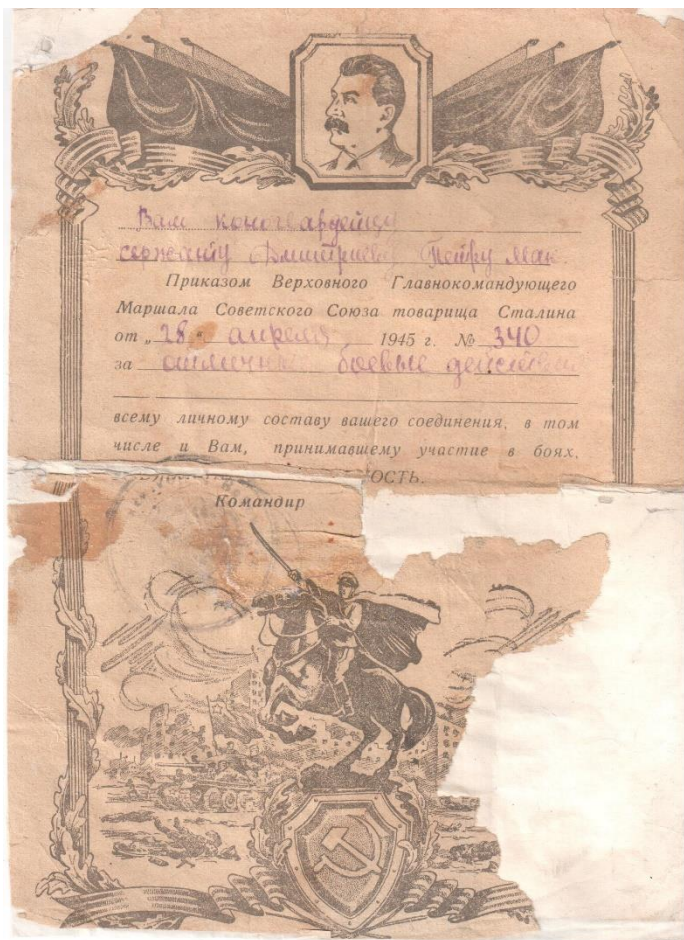 Вам коногвардейцу
сержанту Дмитриеву Петру Мак.
Приказом Верховного Главнокомандующего
Маршала Советского Союза товарища Сталина
от „28“ апреля 1945 г. № 340
за отличные боевые действия
всему личному составу вашего соединения, в том
числе и Вам, принимавшему участие в боях,
ОСТЬ.
Командир